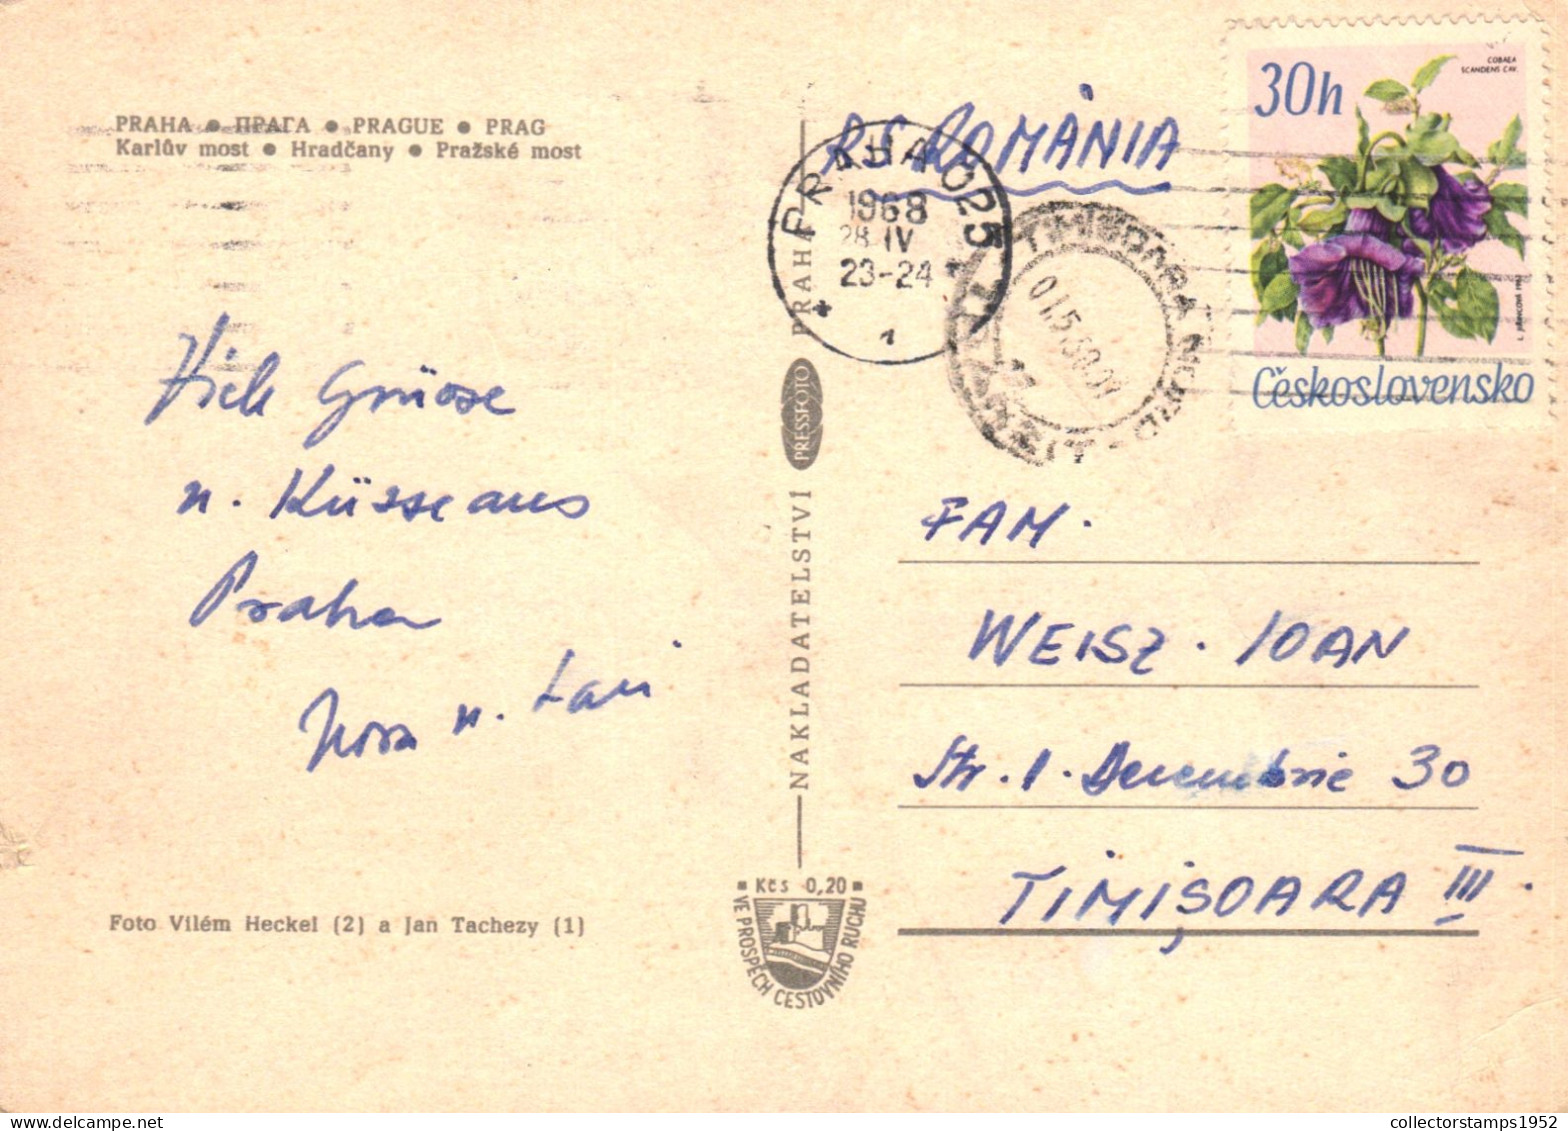 PRAHA • ПРАГА • PRAGUE • PRAG
Karlův most • Hradčany • Pražské most
Grüsse
u. Küsse aus
Praha
Nora u.
Foto Vilém Heckel (2) a Jan Tachezy (1)
NAKLADATELSTVÍ PRESSFOTO PRAHA
Kčs 0,20
VE PROSPĚCH CESTOVNÍHO RUCHU
RS ROMÂNIA
PRAHA 025
1968
28. IV
23-24
1
TIMIȘOARA
01.5.68
30h
COBAEA
SCANDENS CAV.
Československo
FAM.
WEISZ. IOAN
Str. 1. Decembrie 30
TIMIȘOARA III.
collectorstamps1952